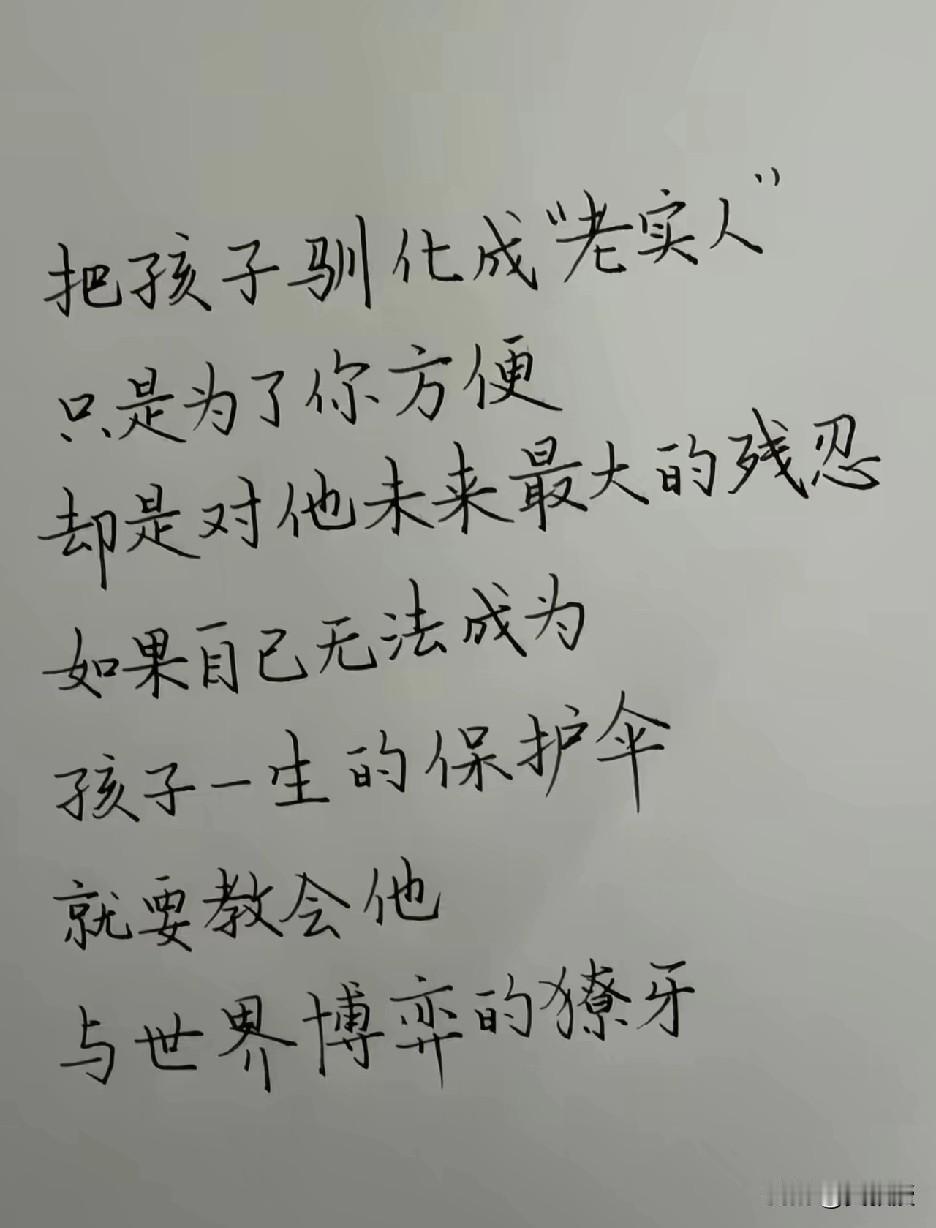 把孩子驯化成“老实人”
只是为了你方便
却是对他未来最大的残忍
如果自己无法成为
孩子一生的保护伞
就要教会他
与世界博弈的獠牙